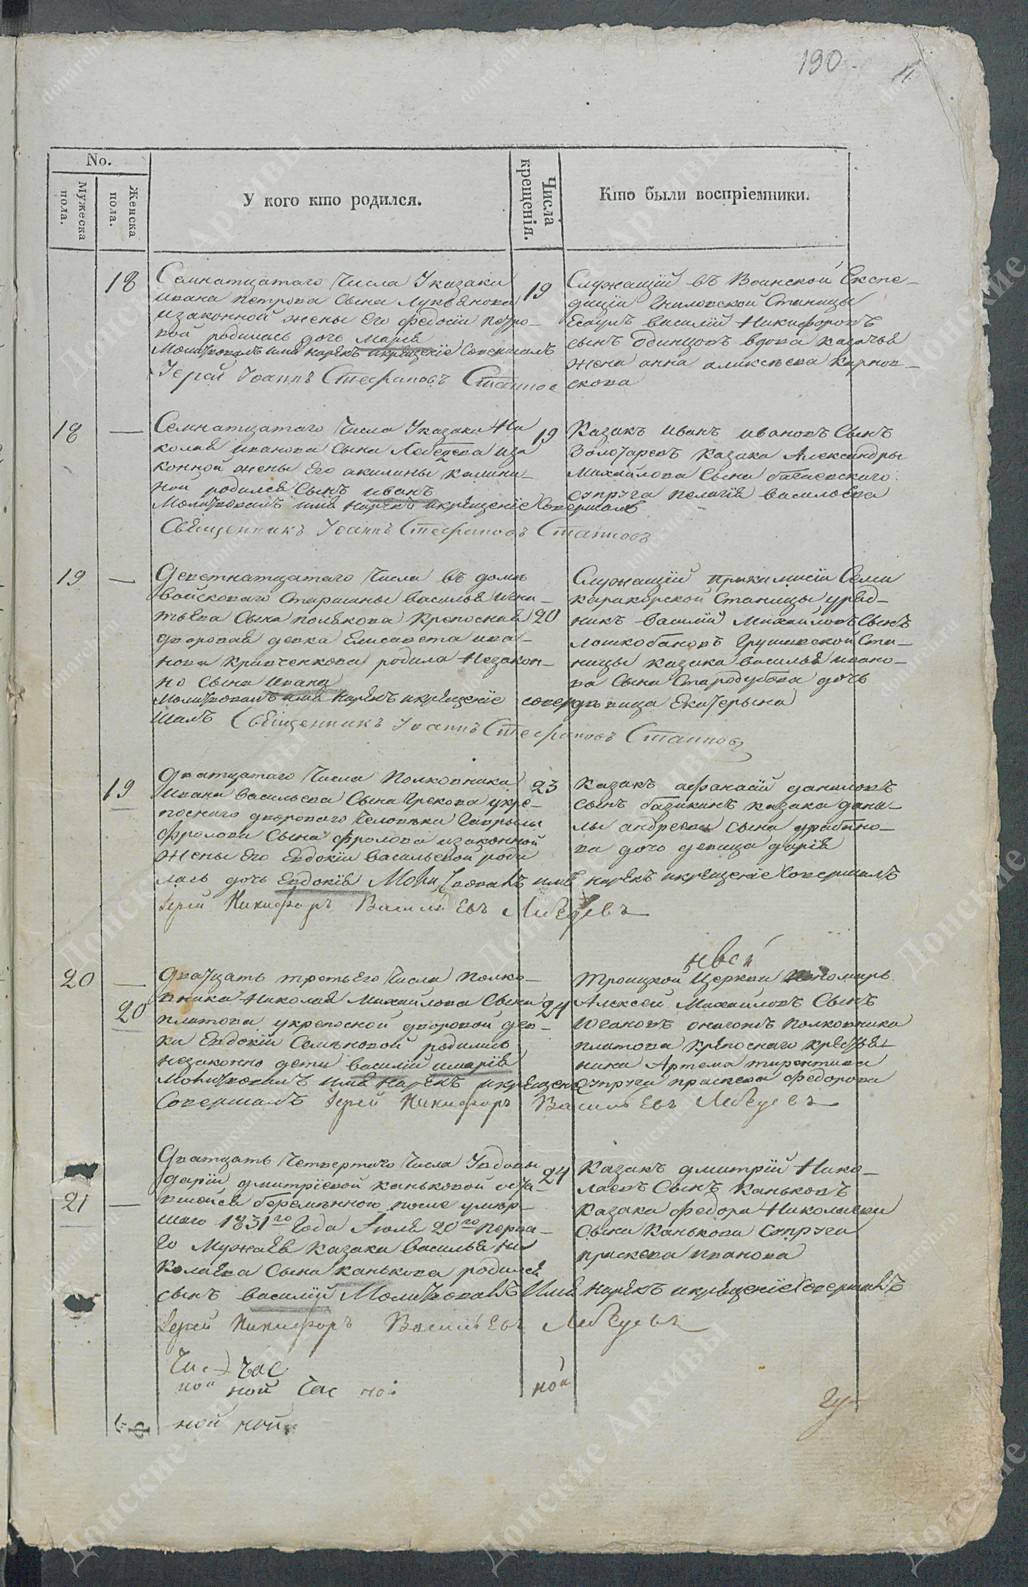 190.
No.
Мужеска пола.
Женска пола.
У кого кто родился.
Числа крещенія.
Кто были воспріемники.
18
Семнатцатаго Числа Указака
ивана петрова Сына Лукьянова
изаконной жены Его федосіи петро-
вой родилась дочь Марія
Молитвовалъ имя нарекъ икрещеніе Совершалъ
Іерей Іоаннъ Стефановъ
19
Служащій въ Воинской Експе-
диціи Гниловской Станицы
Есаулъ василій Никифоровъ
сынъ Одинцовъ вдова казачья
жена анна аликсѣева
18 —
Семнатцатаго Числа Указака Ни
колая иванова Сына Лебедева иза
конной жены Его акилины калини-
ной родился Сынъ иванъ
Молитвовалъ имя нарекъ икрещеніе Совершалъ
Священникъ Іоаннъ Стефановъ
19
Казакъ иванъ ивановъ Сынъ
Золотаревъ казака Александры
Михайлова Сына
супруга пелагія васильева
19 —
Деветнатцатаго Числа въ доме
войсковаго Старшины Василья игна-
тьева Сына полякова крепосная
дворовая девка Елисавета ива-
нова кравченкова родила незакон-
но сына ивана
Молитвовалъ имя нарекъ икрещеніе совер
шалъ Священникъ Іоаннъ Стефановъ
20
Служащій Семи
каракорской Станицы уряд-
никъ василій Михайловъ Сынъ
Грушевской Ста-
ницы казака василья ивано-
ва Сына Стародубова дочь
девица Екатерина
19
Дватцатаго Числа Полковника
ивана васильева Сына Грекова укре-
поснаго двороваго Человека Гаврилы
фролова Сына фролова изаконной
жены Его Евдокіи васильевой роди
лась дочь Евдокія Молитвовалъ имя нарекъ икрещеніе Совершалъ
Іерей Никифоръ Васильевъ Лебедевъ
23
Казакъ афанасій даниловъ
сынъ казака дани-
лы андреева сына
ва дочь девица дарія
20 —
20
Дватцать третьего Числа Полко-
вника Николая Михаилова Сына
платова укрепосной дворовой дев-
ки Евдокіи Семеновой родились
незаконно дети василій имарія
Молитвовалъ имя нарекъ икрещеніе
Совершалъ Іерей Никифоръ Васильевъ Лебедевъ
24
Троицкой Церкви Пономарь
Алексей Михайловъ Сынъ
полковника
платова крепоснаго крестья-
нина Артема
супруга праскева Федорова
21 —
Дватцать Четвертаго Числа Увдовы
даріи дмитріевой каньковой оста-
вшейся беременною после умер-
шаго 1831го Года Іюля 20го перва-
го Мужа Ея казака василья Ни
колаева Сына канькова родился
сынъ василій Молитвовалъ Имя нарекъ икрещеніе Совершалъ
Іерей Никифоръ Васильевъ Лебедевъ
24
Казакъ дмитрій Нико-
лаевъ Сынъ Каньковъ
казака федора Николаева
Сына Канькова Супруга
праскева иванова
Час
ной ной Час ной
ной
ной ной
Донские Архивы
donarch.ru